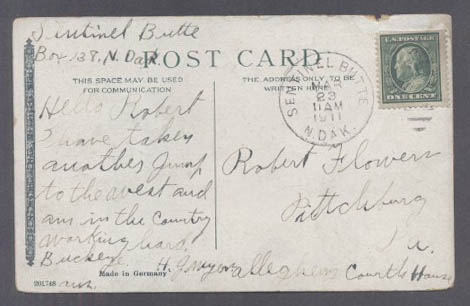 Sentinel Butte
Box 138, N. Dak
POST CARD
THIS SPACE MAY BE USED
FOR COMMUNICATION
THE ADDRESS ONLY TO BE
WRITTEN HERE
SENTINEL BUTTE
MAR
23
11AM
1911
N. DAK.
U.S. POSTAGE
ONE CENT
Hello Robert
I have taken
another Jump
to the west and
am in the Country
working hard.
Buckeye
ans.
H. J. Myers
Robert Flowers
Pittsburg
Pa.
Allegheny Court House
Made in Germany
201748